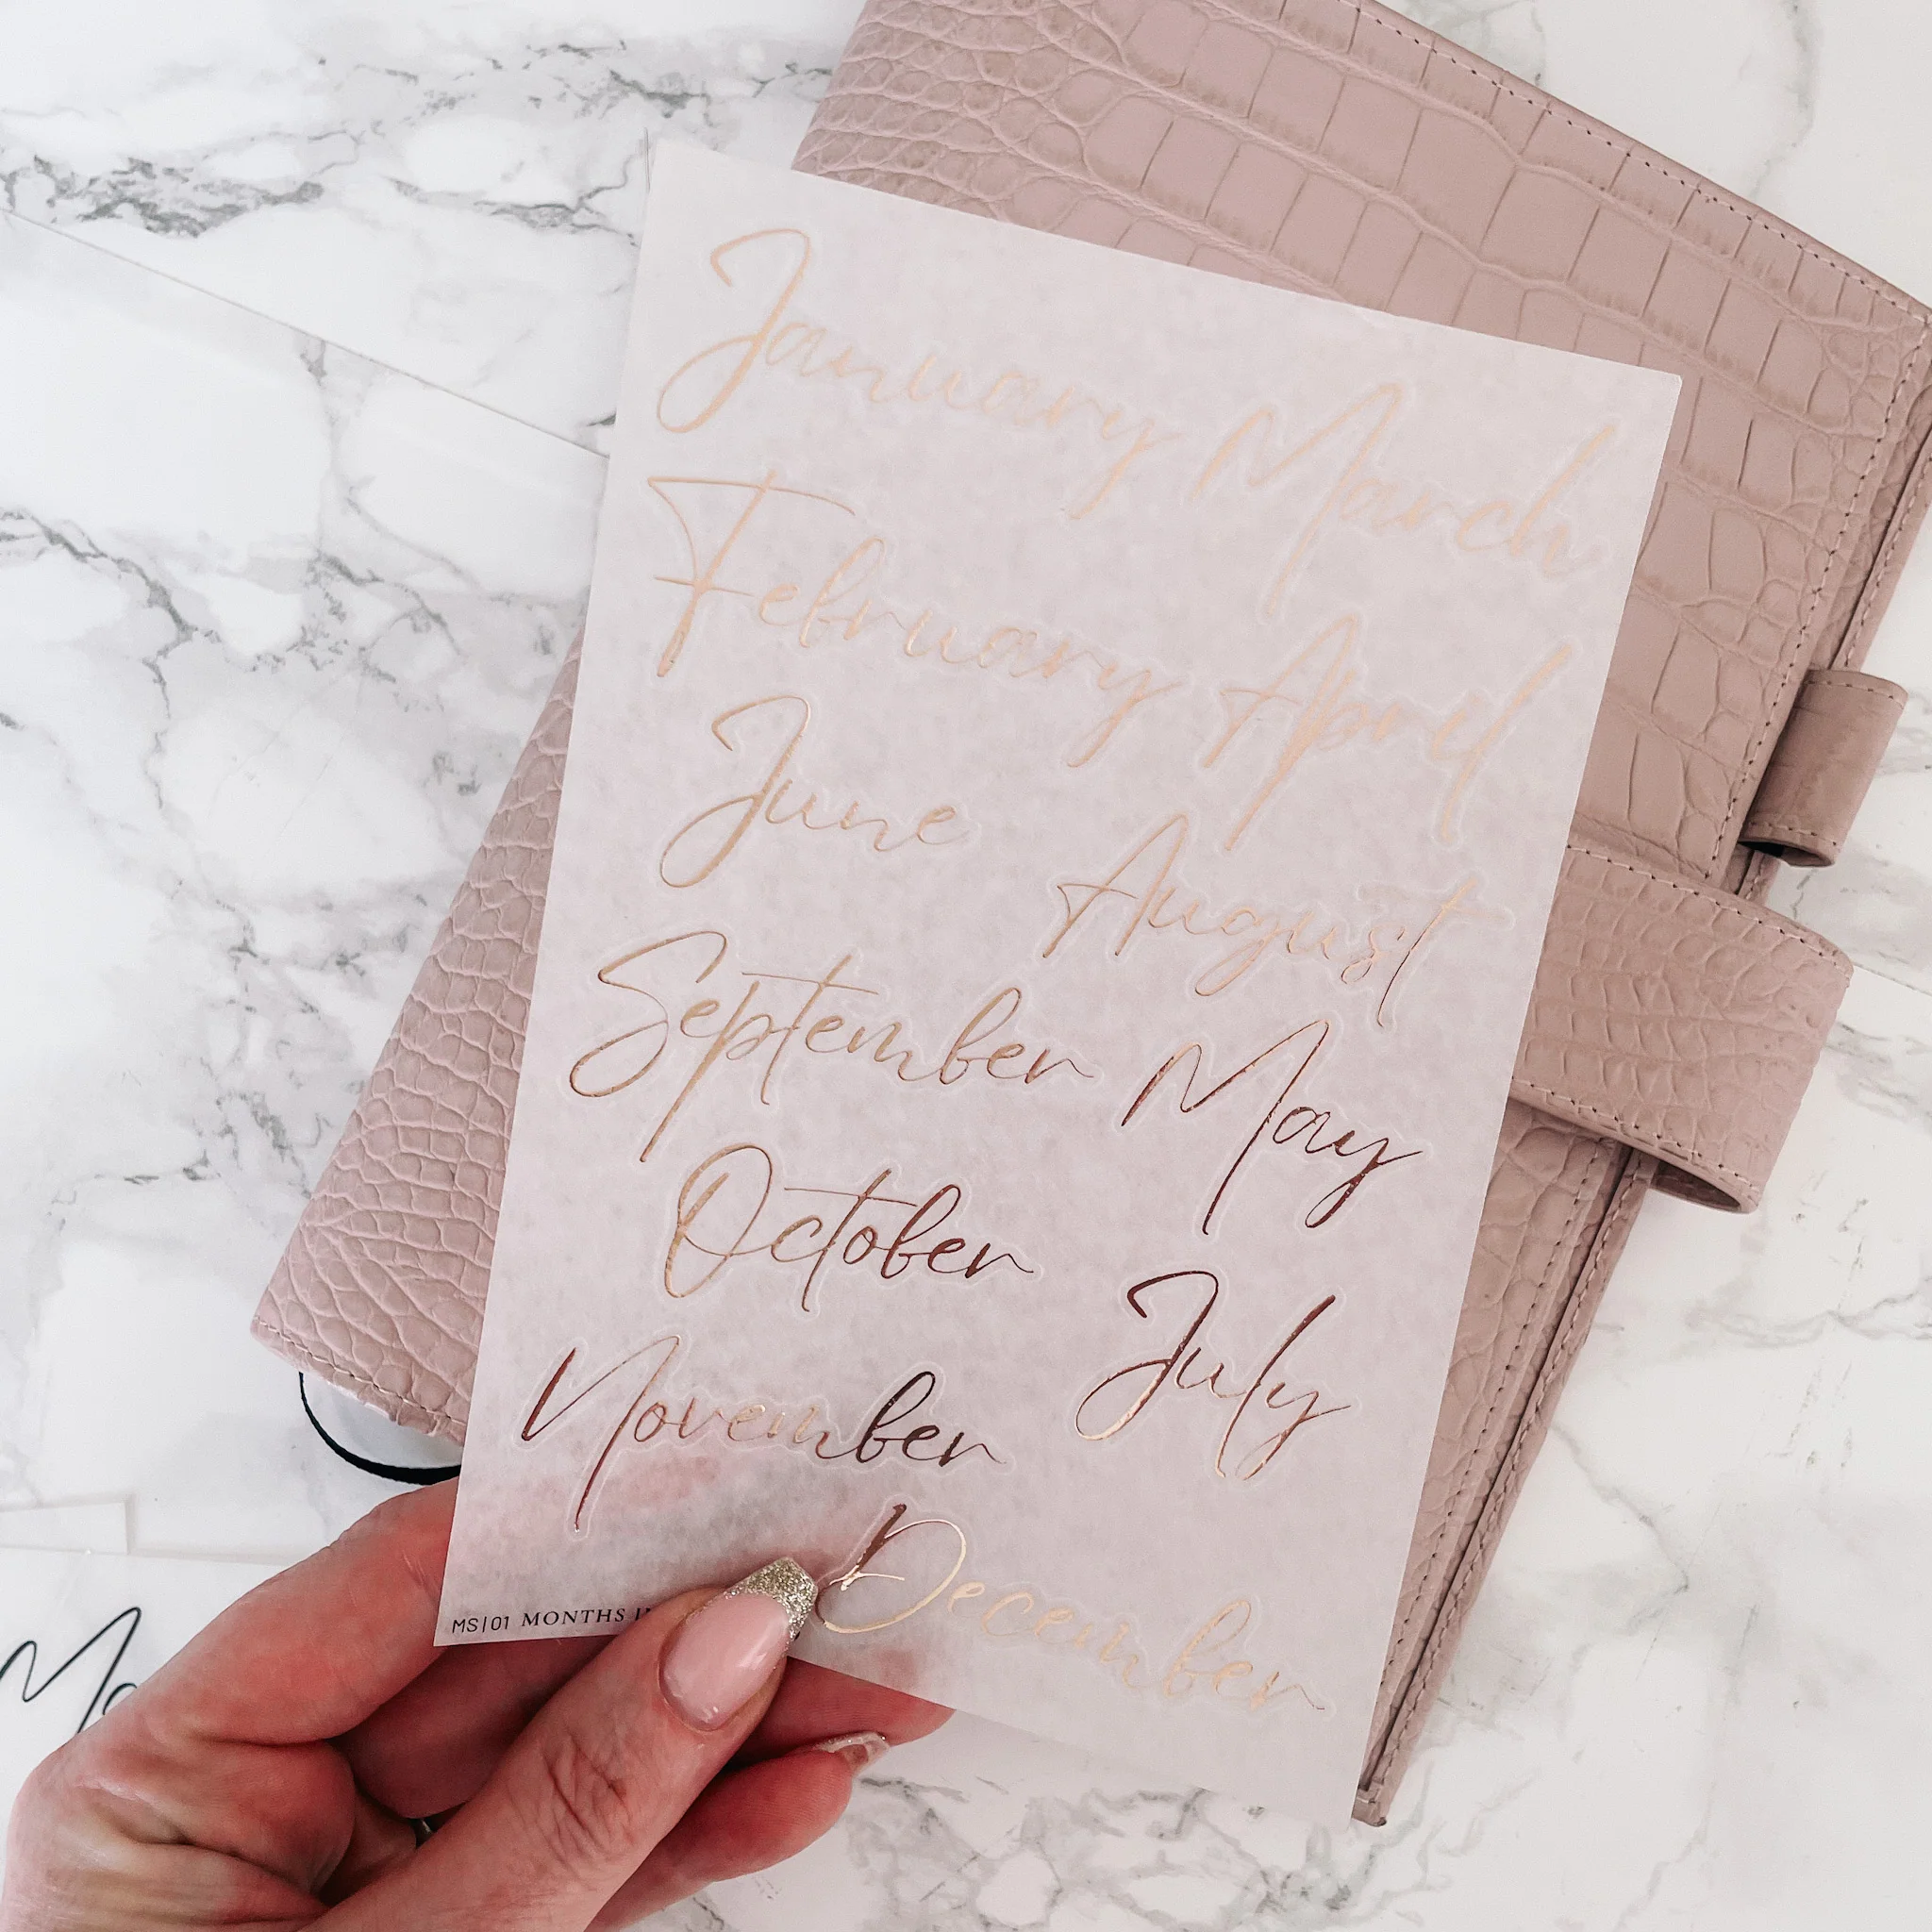 January March
February April
June August
September May
October July
November
December
MS|01 MONTHS